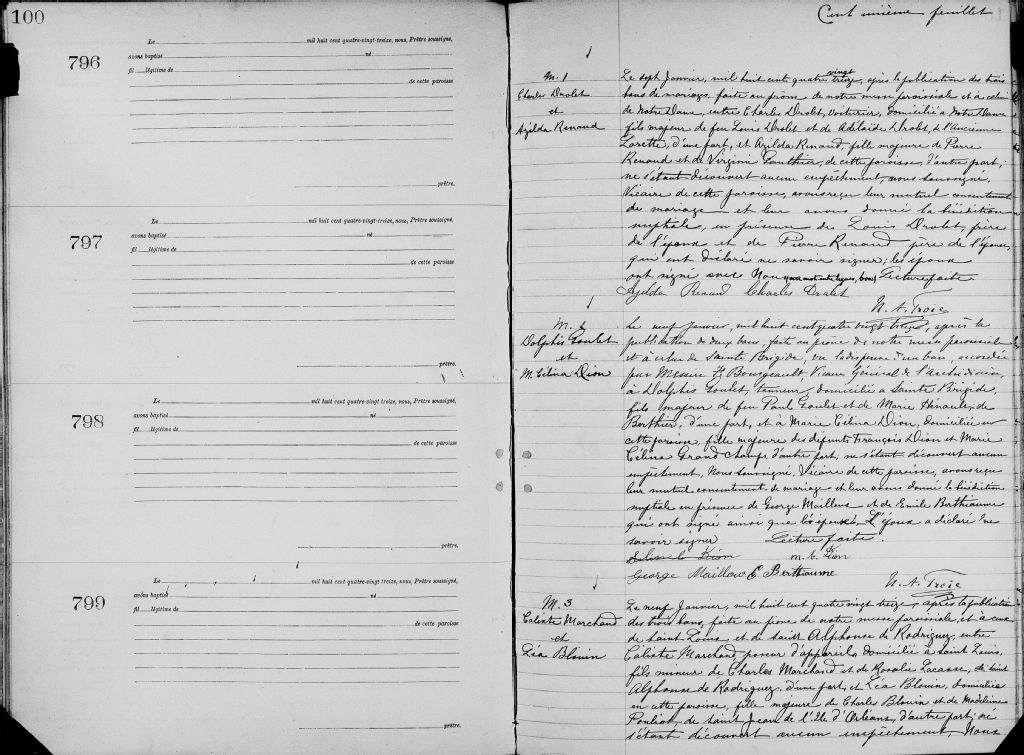 100
796
Le mil huit cent quatre-vingt-treize, nous, Prêtre soussigné,
avons baptisé né
fil légitime de
de cette paroisse
prêtre.
797
Le mil huit cent quatre-vingt-treize, nous, Prêtre soussigné,
avons baptisé né
fil légitime de
de cette paroisse
prêtre.
798
Le mil huit cent quatre-vingt-treize, nous, Prêtre soussigné,
avons baptisé né
fil légitime de
de cette paroisse
prêtre.
799
Le mil huit cent quatre-vingt-treize, nous, Prêtre soussigné,
avons baptisé né
fil légitime de
de cette paroisse
prêtre.
Cent unième feuillet
M. 1
Charles Drolet
et
Azilda Renaud
Le sept Janvier, mil huit cent quatre vingt treize, après la publication des trois
bans de mariages, faite au prône de notre messe paroissiale et à celui
de Notre Dame, entre Charles Drolet, voiturier, domicilié à Notre Dame
fils majeur de feu Louis Drolet et de Adélaide Drolet, de l'Ancienne
Lorette, d'une part, et Azilda Renaud, fille majeure de Pierre
Renaud et de Virginie Gauthier, de cette paroisse, d'autre part;
ne s'étant découvert aucun empêchement, nous soussigné,
Vicaire de cette paroisse, avons reçu leur mutuel consentement
de mariage et leur avons donné la bénédiction
nuptiale, en présence de Louis Drolet, frère
de l'époux et de Pierre Renaud père de l'épouse,
qui ont déclaré ne savoir signer; les époux
ont signé avec Nous Lecture faite
Azilda Renaud Charles Drolet
N. A. Troie
M. 2
Dolphis Goulet
et
M. Célina Dion
Le neuf Janvier, mil huit cent quatre vingt treize, après la
publication de deux bans, faite au prône de notre messe paroissiale
et à celui de Sainte Brigide, vu la dispense d'un ban, accordée
par Messire Bourgeault, Vicaire Général de l'archidiocèse,
à Dolphis Goulet, tanneur, domicilié à Sainte Brigide,
fils majeur de feu Paul Goulet et de Marie Hénault, de
Berthier, d'une part, et à Marie Célina Dion, domiciliée en
cette paroisse, fille majeure des défunts François Dion et Marie
Célina Grand'champ d'autre part; ne s'étant découvert aucun
empêchement, Nous soussigné, Vicaire de cette paroisse, avons reçu
leur mutuel consentement de mariage et leur avons donné la bénédiction
nuptiale en présence de George Mailloux et de Emile Berthiaume
qui ont signé ainsi que l'épouse, L'époux a déclaré ne
savoir signer Lecture faite.
M. C. Dion
George Mailloux E Berthiaume
N. A. Troie
M. 3
Caliste Marchand
et
Léa Blouin
Le neuf Janvier, mil huit cent quatre vingt treize, après la publication
des trois bans, faite au prône de notre messe paroissiale et à ceux
de saint Louis et de saint Alphonse de Rodriguez, entre
Caliste Marchand poseur d'appareils, domicilié à saint Louis,
fils mineur de Charles Marchand et de Rosalie Lacasse, de saint
Alphonse de Rodriguez, d'une part, et Léa Blouin, domiciliée
en cette paroisse, fille majeure de Charles Blouin et de Madeleine
Pouliot, de saint Jean de l'Ile d'Orléans, d'autre part; ne
s'étant découvert aucun empêchement, Nous